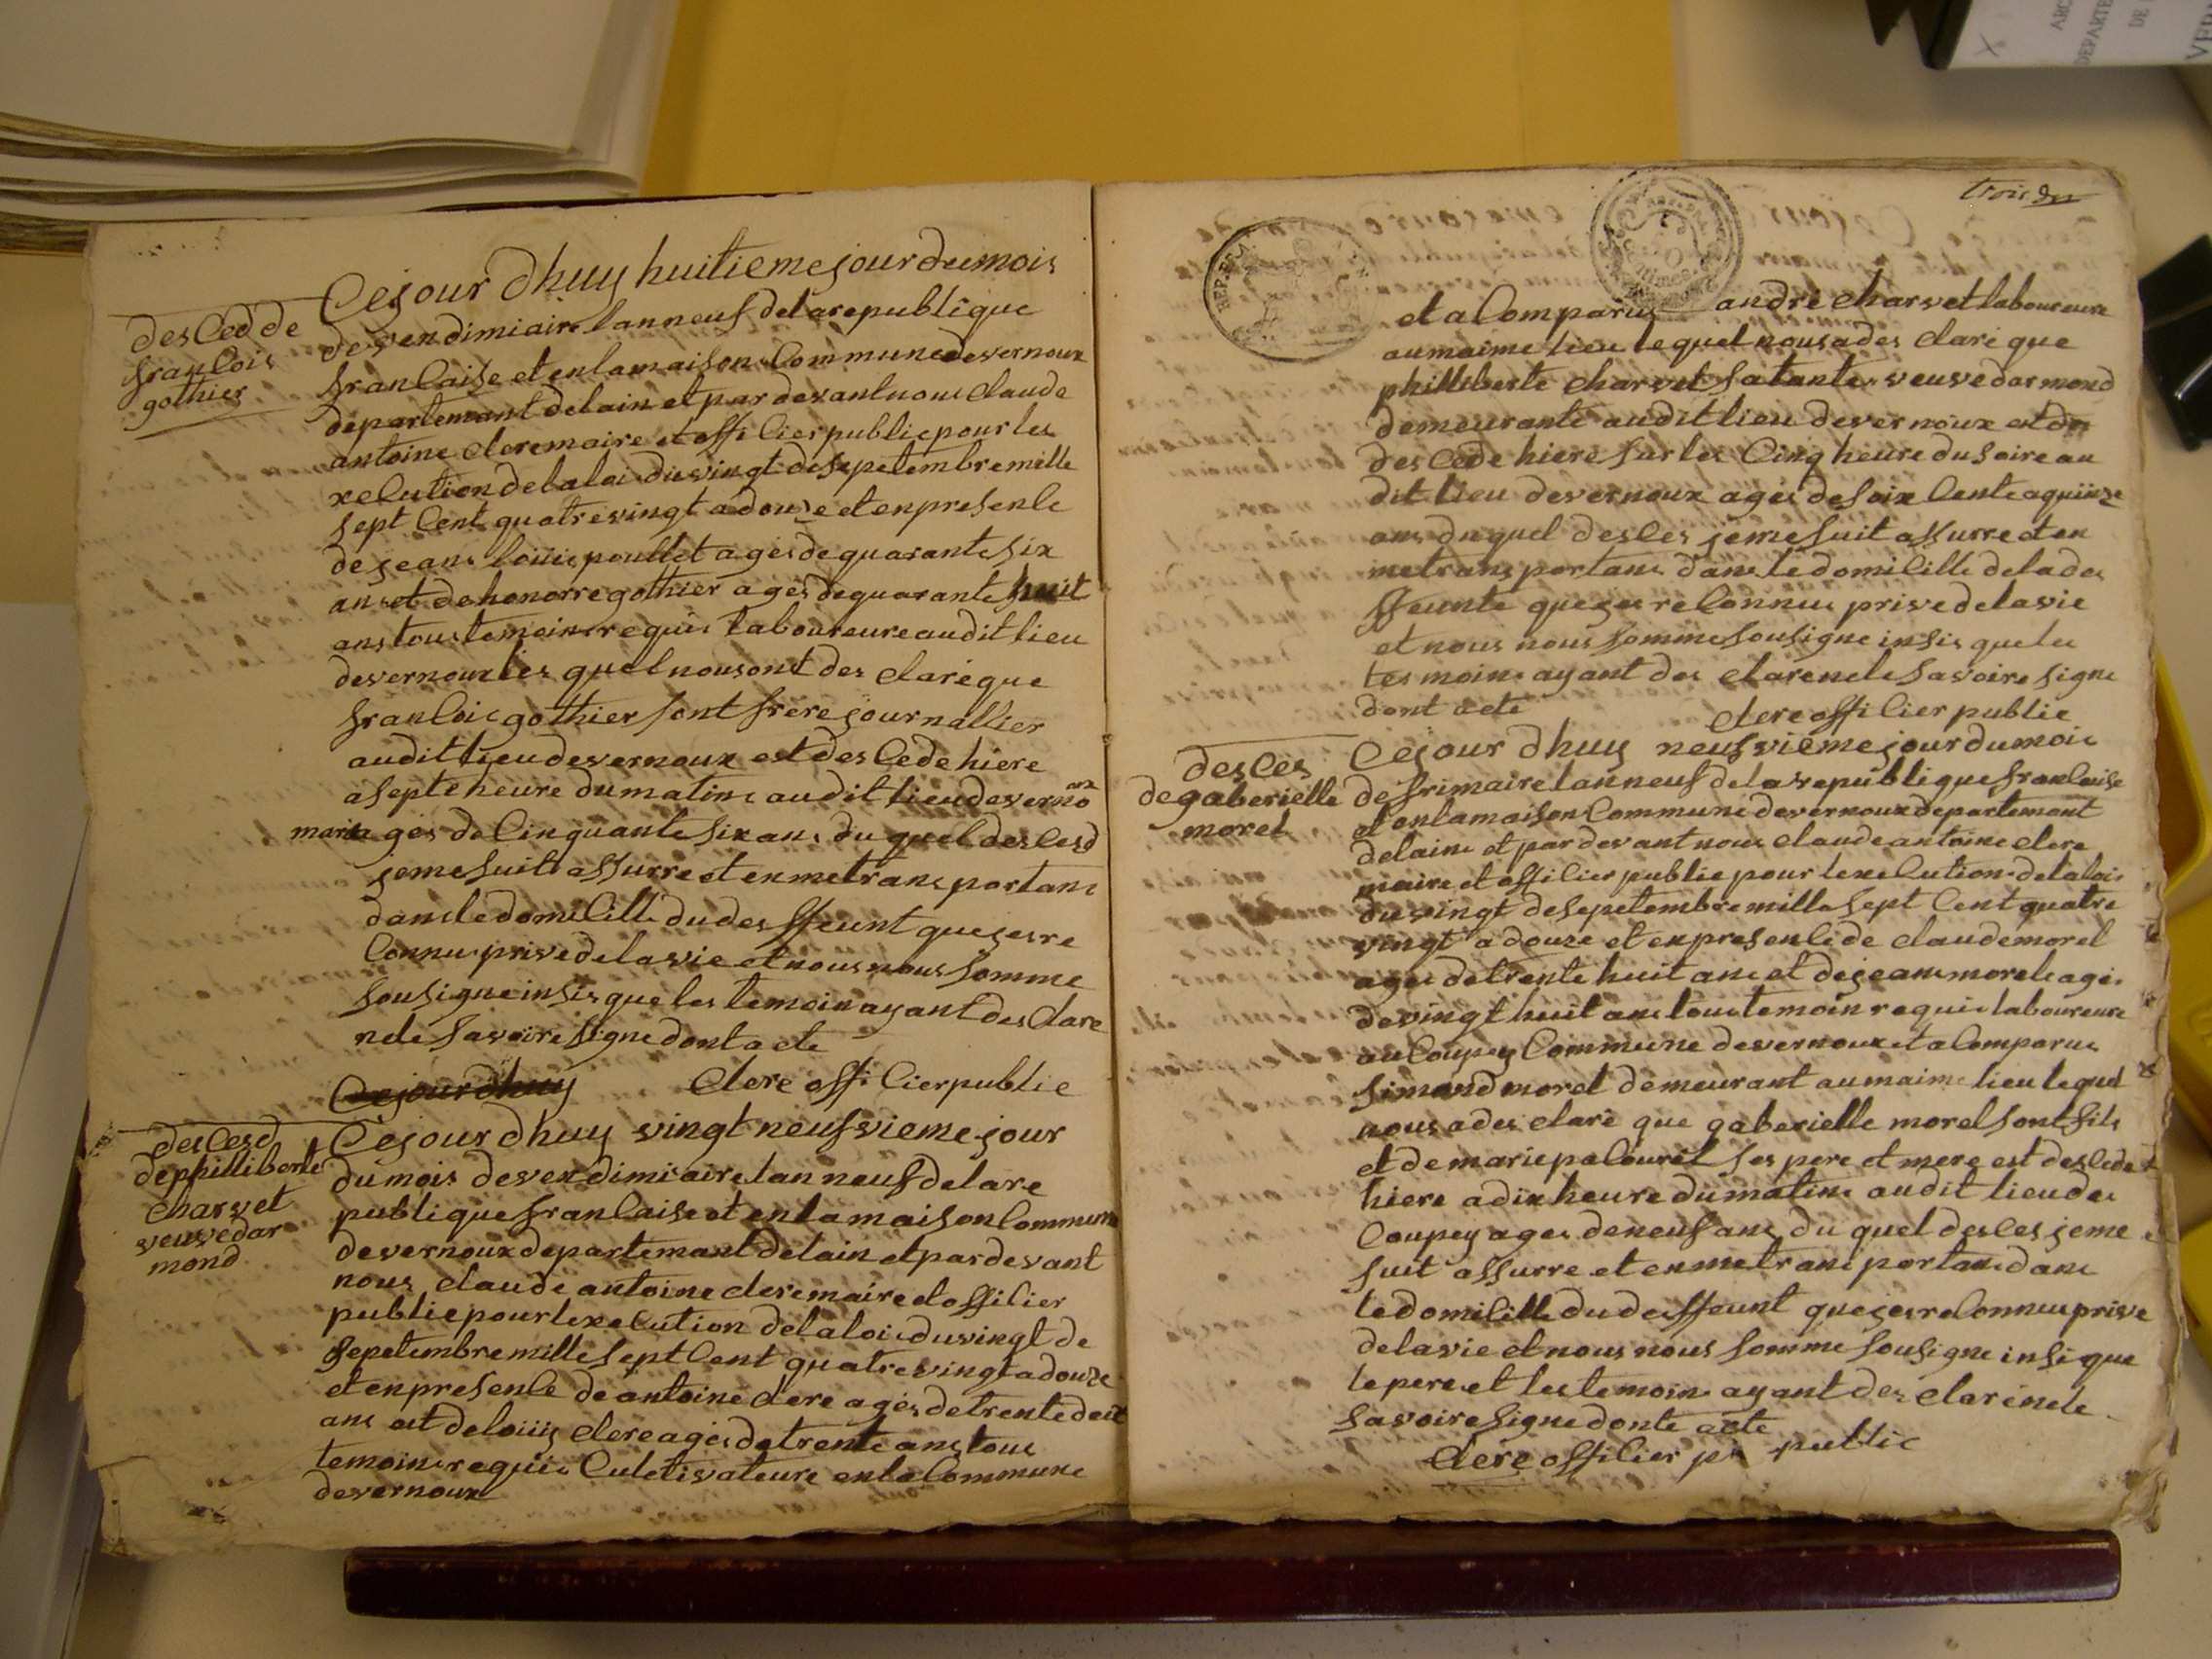 ARC
DEPARTE
DE
desCed de
franCois
gothier
Cejour dhuy huitieme jour du mois
de vendimiaire lanneuf delarepublique
franCaise et enlamaison Commune devernoux
departemant delain et par devant nous claude
antoine clere maire et offiCier public pour les
xeCution delaloi du vingt de sepetembre mille
sept Cent quatrevingt a douze et en presenCe
de jeans louis poullet agés de quarante six
ans et de honorre gothier agés de quarante huit
ans tous temoins requis laboureure audit lieu
devernoux les quel nous ont des claré que
franCois gothier sont frere journallier
audit lieu devernoux est desCede hiere
a septe heure du matins audit lieu deverno
oux
marié agés de Cinquante six ans du quel desCesd
jeme suit assurre et en me trans portant
dans le domiCille du des ffeunt que jesre
Connu prive delavie et nous nous somme
sousigne insis que les temoin ayant des clare
nele savoire signe dont acte
Cejour dhuy clere offiCier public
desCesd
de phillib​erte
charvet
veuvedar
mond
Cejour dhuy vingt neufvieme jour
du mois de vendimiaire lan neuf delare
publique franCaise et en la maison Commune
devernoux departemant delain et par devant
nous claude antoine clere maire et offiCier
public pour lexeCution delaloi du vingt de
sepetembre mille sept Cent quatrevingt a douze
et en presenCe de antoine clere agés de trente deut
ans et de louis clere agés de trente ans tous
temoins requis Culetivateure en la Commune
devernoux
trois
REP. FRA.
et a Comparus andré charvet laboureure
au maime lieu le quel nous a des claré que
philliberte charvet sa tante veuve darmond
demeurante audit lieu devernoux est
desCede hiere sur les Cinq heure du soire au
dit lieu devernoux agés de soix Cente a quinze
ans du quel desCes jeme suit assurre et en
me trans portant dans le domiCille dela des
ffeunte que jes reConnus prive delavie
et nous nous somme sousigne insis que les
tes moins ayant des clare nele savoire signe
dont acte clere offiCier public
desCes
de gaberielle
morel
Cejour dhuy neufvieme jour du mois
de frimaire lan neuf dela republique franCaise
et en la maison Commune devernoux departemant
delains et par devant nous claude antoine clere
maire et offiCier public pour lexeCution delaloi
du vingt de sepetembre mille sept Cent quatre
vingt a douze et en presenCe de claude morel
agés de trente huit ans et de jeans morele agés
de vingt huit ans tous temoin requis laboureure
au Coupey Commune devernoux et a Comparus
simond morel demeurant au maime lieu le quel
nous a des claré que gaberielle morel sont fils
et de marie paCouret ses pere et mere est desCede
hiere a dix heure du matins audit lieu des
Coupey agés de neuf ans du quel desCes jeme
suit assurre et en me trans portant dans
le domiCille du desffeunt que jes reConnus prive
delavie et nous nous somme sousigne insi que
le pere et les temoins ayant des claré nele
savoire signe donte acte
clere offiCier public